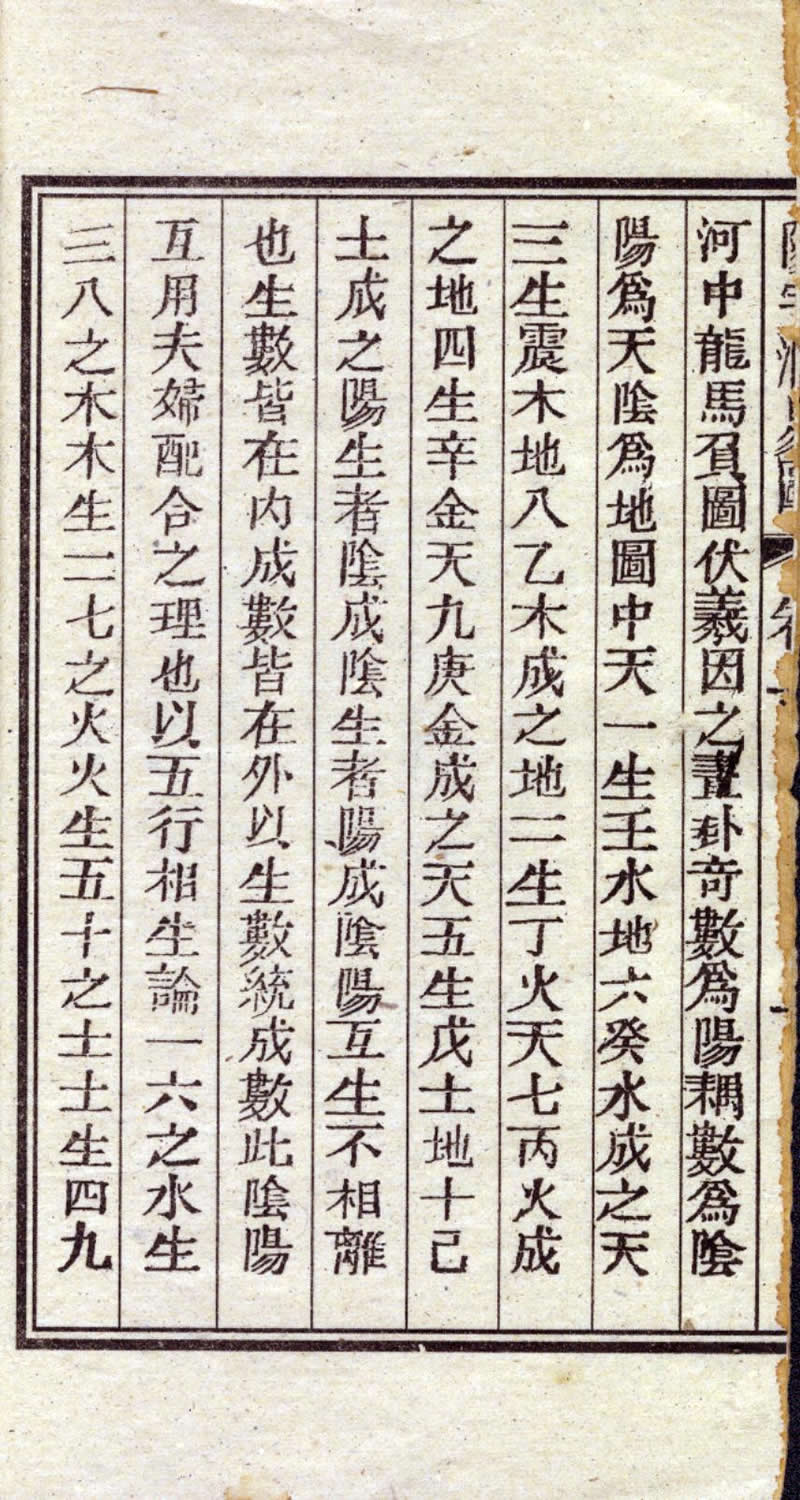 河中龍馬負圖伏羲因之畫卦奇數爲陽耦數爲陰
陽爲天陰爲地圖中天一生壬水地六癸水成之天
三生震木地八乙木成之地二生丁火天七丙火成
之地四生辛金天九庚金成之天五生戊土地十己
土成之陽生者陰成陰生者陽成陰陽互生不相離
也生數皆在內成數皆在外以生數統成數此陰陽
互用夫婦配合之理也以五行相生論一六之水生
三八之木木生二七之火火生五十之土土生四九